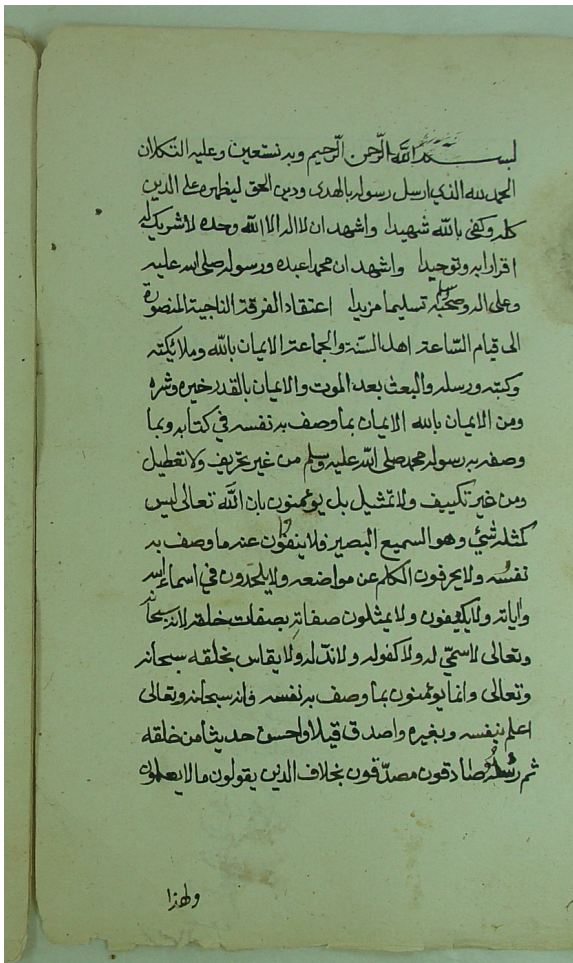 بسم الله الرحمن الرحيم وبه نستعين وعليه التكلان
الحمد لله الذي ارسل رسوله بالهدى ودين الحق ليظهره على الدين
كله وكفى بالله شهيدا واشهد ان لا اله الا الله وحده لا شريك له
اقرارا به وتوحيدا واشهد ان محمدا عبده ورسوله صلى الله عليه
وعلى اله وصحبه وسلم تسليما مزيدا اعتقاد الفرقة الناجية المنصورة
الى قيام الساعة اهل السنة والجماعة الايمان بالله وملائكته
وكتبه ورسله والبعث بعد الموت والايمان بالقدر خيره وشره
ومن الايمان بالله الايمان بما وصف به نفسه في كتابه وبما
وصفه به رسوله محمد صلى الله عليه وسلم من غير تحريف ولا تعطيل
ومن غير تكييف ولا تمثيل بل يؤمنون بان الله تعالى ليس
كمثله شئ وهو السميع البصير فلا ينفون عنه ما وصف به
نفسه ولا يحرفون الكلم عن مواضعه ولا يلحدون في اسماء الله
وآياته ولا يكيفون ولا يمثلون صفاته بصفات خلقه لانه سبحانه
وتعالى لا سمي له ولا كفو له ولا ند له ولا يقاس بخلقه سبحانه
وتعالى وانما يؤمنون بما وصف به نفسه فانه سبحانه وتعالى
اعلم بنفسه وبغيره واصدق قيلا واحسن حديثا من خلقه
ثم رسله صادقون مصدقون بخلاف الذين يقولون ما لا يعلمون
ولهذا